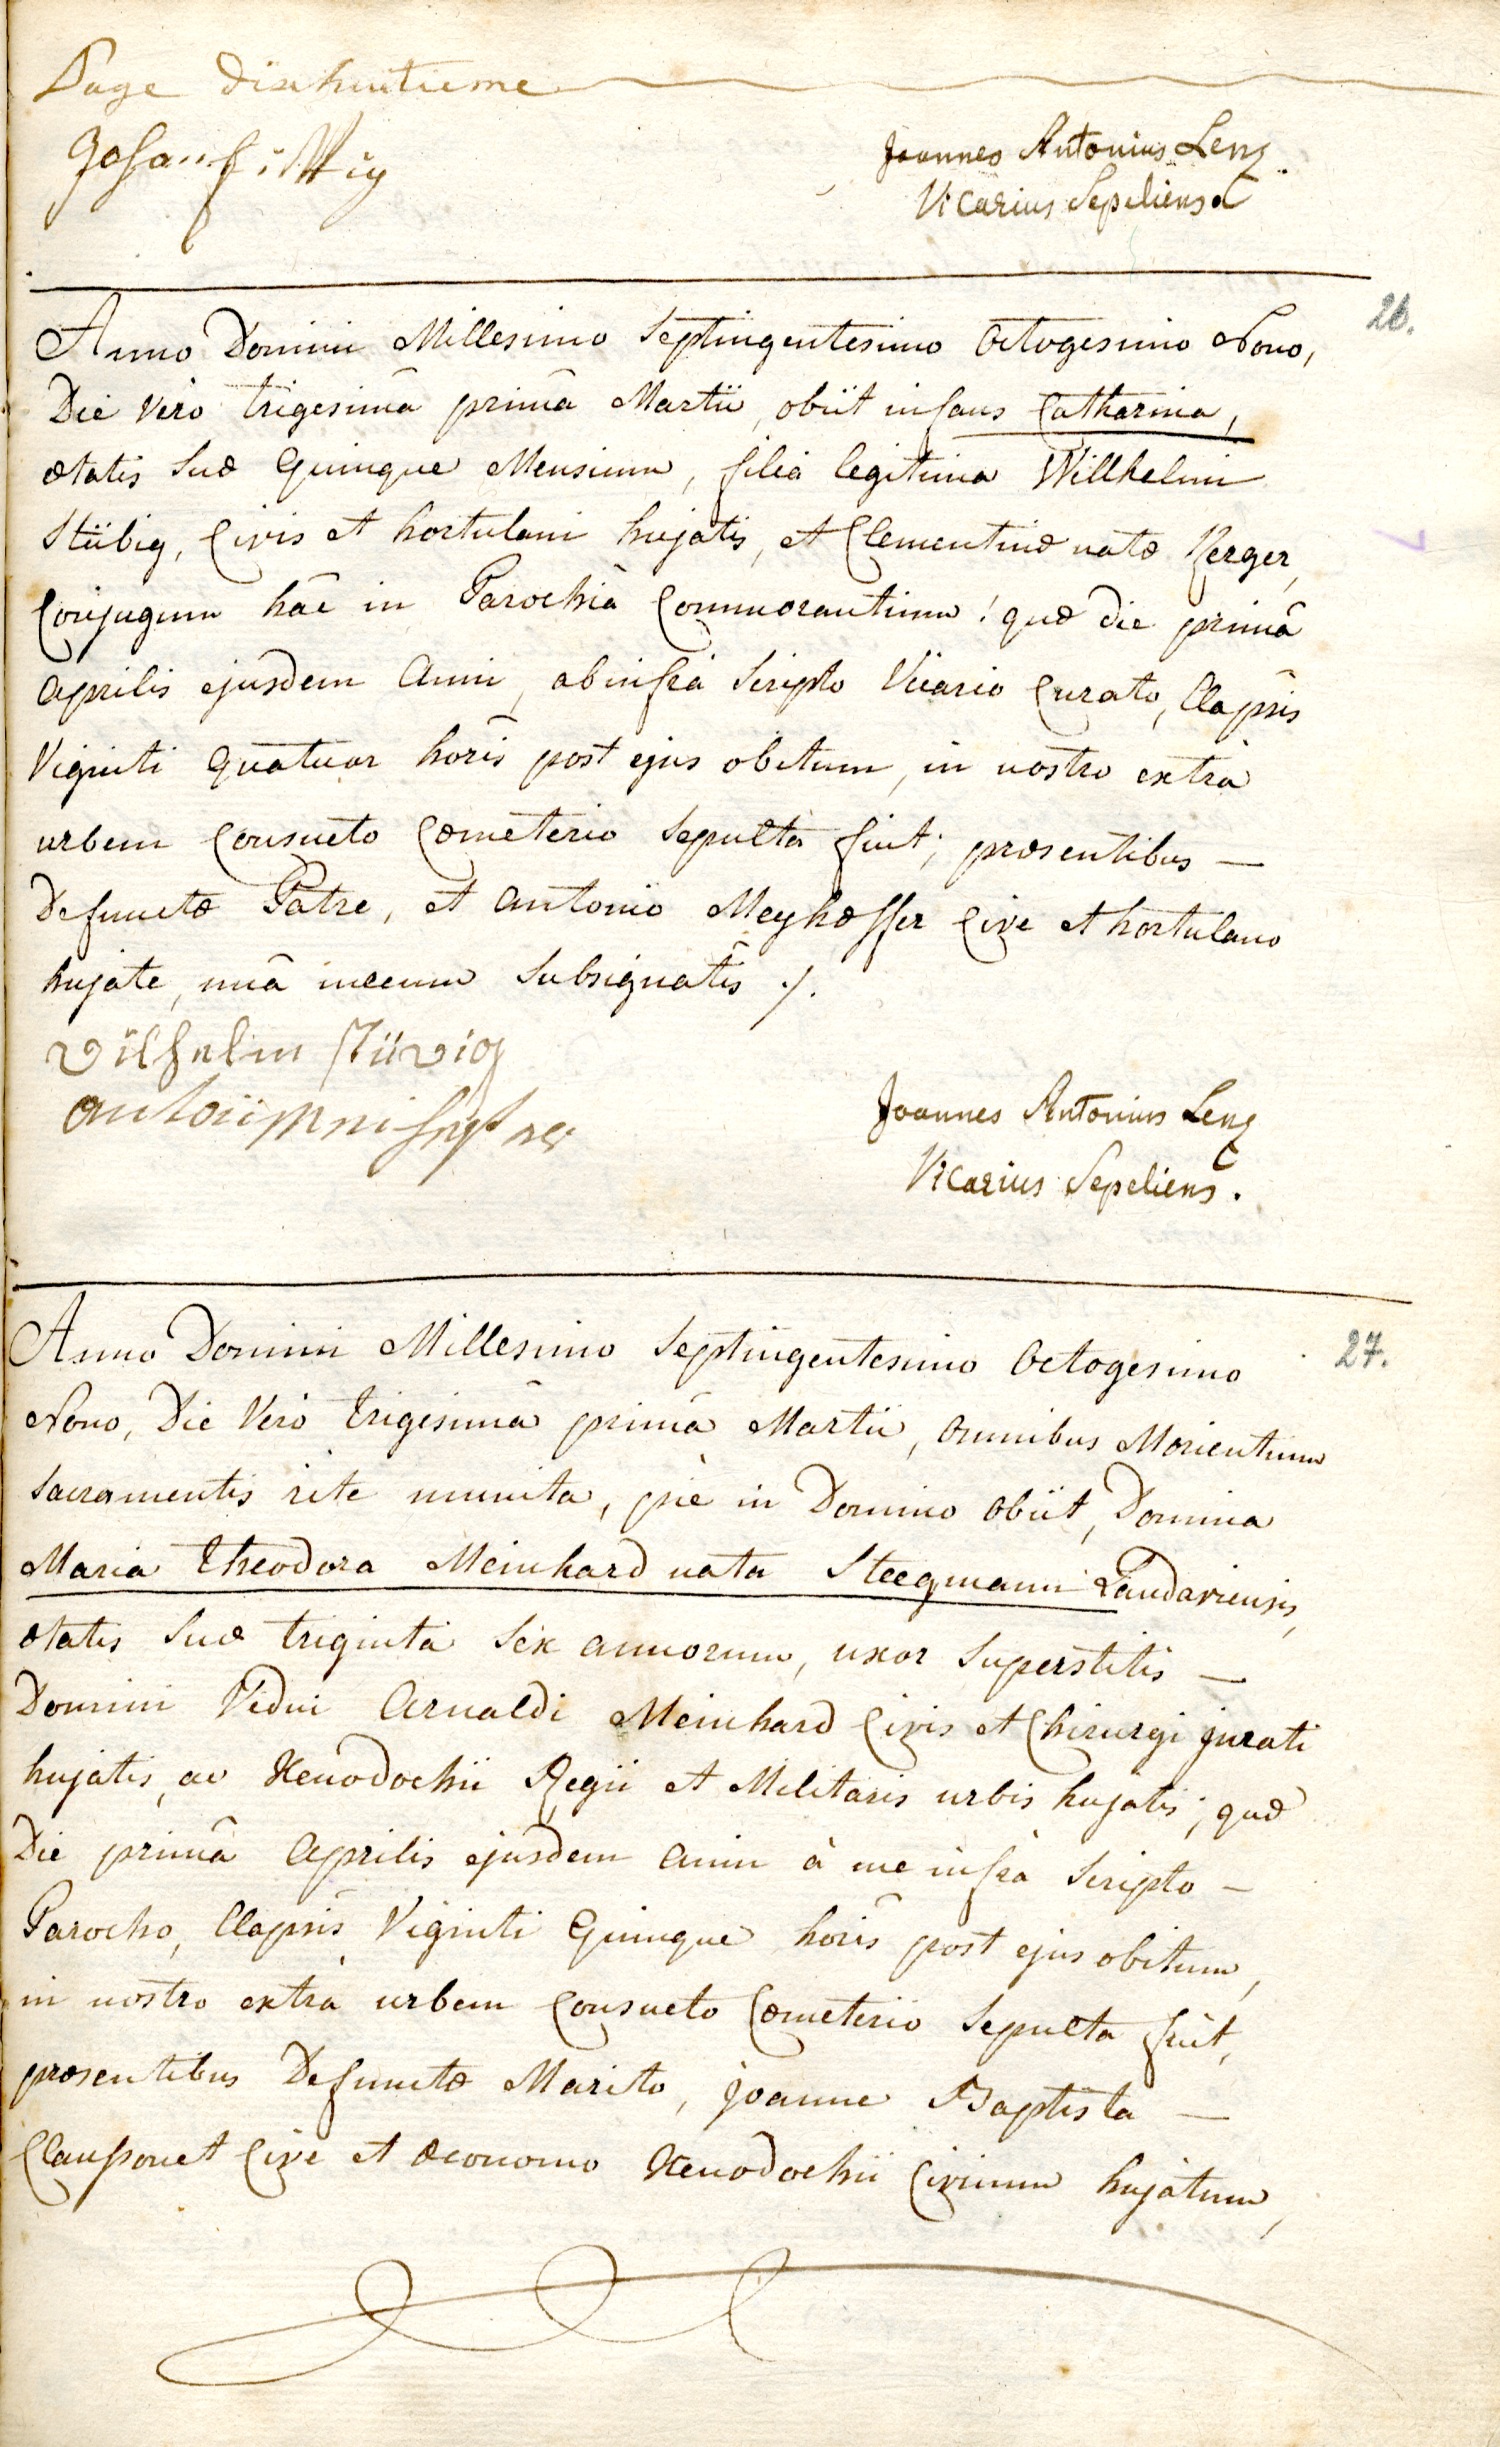 Page dixhuitieme
Joannes Antonius Lenz
Vicarius Sepeliens
26.
Anno Domini Millesimo Septingentesimo Octogesimo Nono,
Die vero trigesimâ primâ Martii, obiit infans Catharina,
ætatis suæ quinque Mensium, filia legitima Willhelmi
Stübig, Civis et hortulani hujatis, et Clementinæ natæ Kerger,
Conjugum hâc in Parochiâ Commorantium! quæ die primâ
Aprilis ejusdem Anni, ab infrà scripto Vicario Curato, Elapsis
Viginti quatuor horis post ejus obitum, in nostro extrà
urbem Consueto Cœmeterio sepulta fuit; præsentibus —
Defunctæ Patre, et Antonio Meyhœffer Cive et hortulano
hujate, unâ mecum subsignatis ./.
Vilhelm Stüvig
Joannes Antonius Lenz
Vicarius Sepeliens.
27.
Anno Domini Millesimo Septingentesimo Octogesimo
Nono, Die Vero trigesimâ primâ Martii, omnibus Morientium
sacramentis rite munita, piè in Domino obiit, Domina
Maria Theodora Meinhard nata Steegmann Landaviensis,
ætatis suæ triginta sex annorum, uxor superstitis —
Domini Vidui Arnaldi Meinhard Civis et Chirurgi jurati
hujatis, ac Xenodochii Regii et Militaris urbis hujatis; quæ
Die primâ Aprilis ejusdem anni à me infrà scripto —
Parocho, Elapsis Viginti quinque horis post ejus obitum,
in nostro extrà urbem Consueto Cœmeterio sepulta fuit,
præsentibus Defunctæ Marito, Joanne Baptista —
Claussonet Cive et œconomo Xenodochii Civium hujatum,